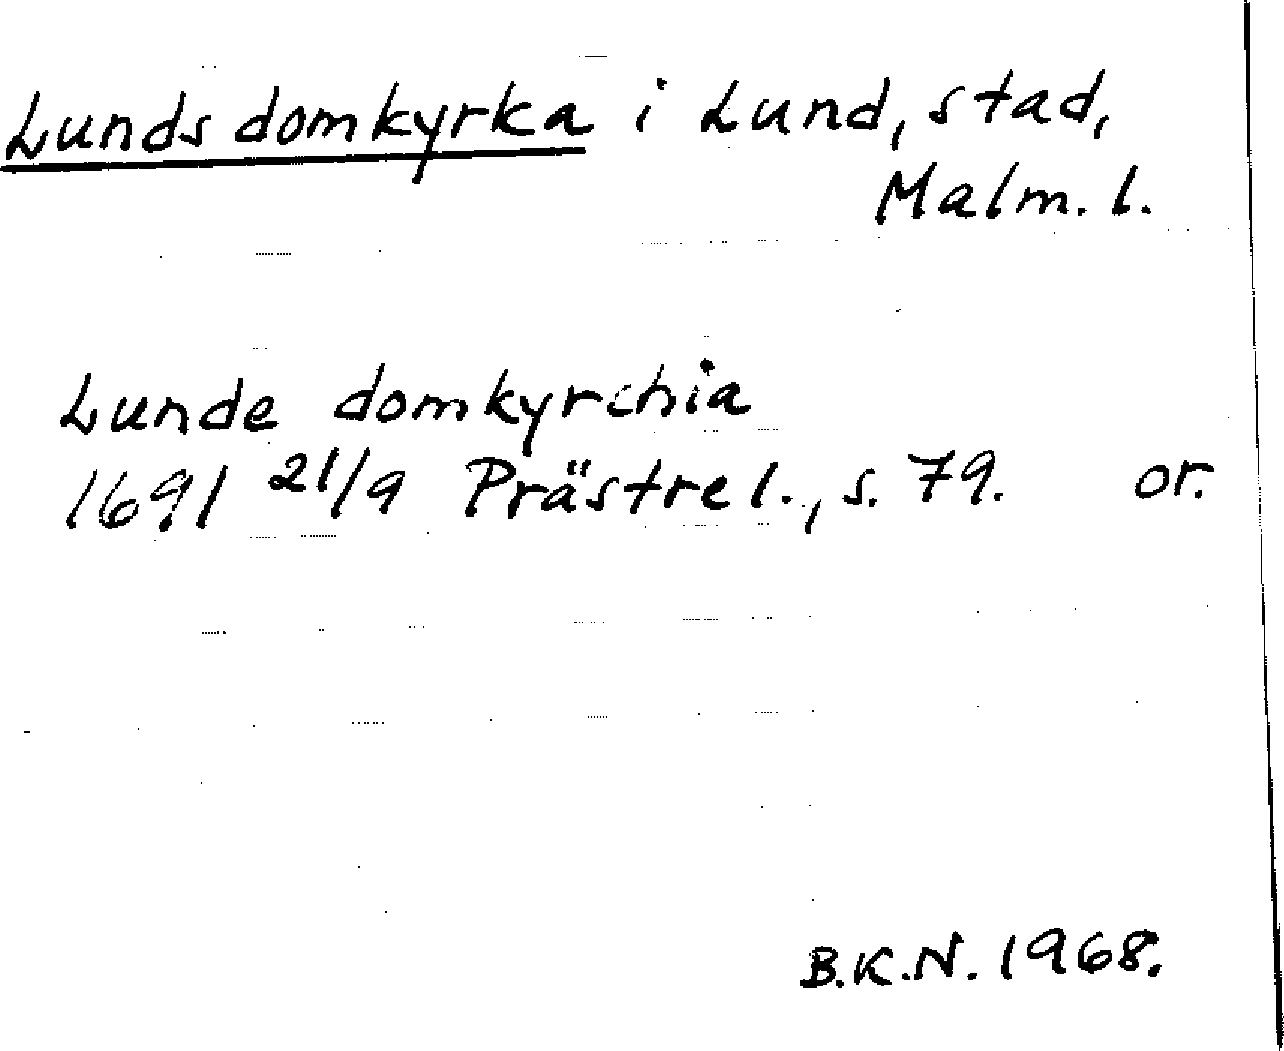 Lunds domkyrka i Lund, stad,
Malm. l.
Lunde domkyrchia
1691 21/9 Prästrel., s. 79. or.
B.K.N. 1968.